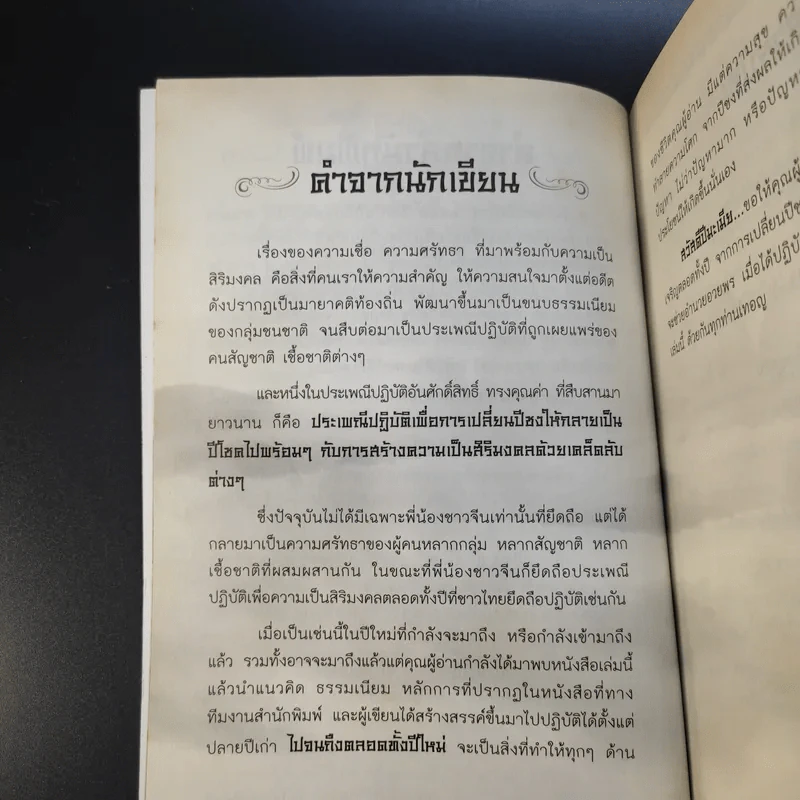 คำจากนักเขียน
เรื่องของความเชื่อ ความศรัทธา ที่มาพร้อมกับความเป็น
สิริมงคล คือสิ่งที่คนเราให้ความสำคัญ ให้ความสนใจมาตั้งแต่อดีต
ดังปรากฏเป็นมายาคติท้องถิ่น พัฒนาขึ้นมาเป็นขนบธรรมเนียม
ของกลุ่มชนชาติ จนสืบต่อมาเป็นประเพณีปฏิบัติที่ถูกเผยแพร่ของ
คนสัญชาติ เชื้อชาติต่างๆ
และหนึ่งในประเพณีปฏิบัติอันศักดิ์สิทธิ์ ทรงคุณค่า ที่สืบสานมา
ยาวนาน ก็คือ ประเพณีปฏิบัติเพื่อการเปลี่ยนปีชงให้กลายเป็น
ปีโชคไปพร้อมๆ กับการสร้างความเป็นสิริมงคลด้วยเคล็ดลับ
ต่างๆ
ซึ่งปัจจุบันไม่ได้มีเฉพาะพี่น้องชาวจีนเท่านั้นที่ยึดถือ แต่ได้
กลายมาเป็นความศรัทธาของผู้คนหลากกลุ่ม หลากสัญชาติ หลาก
เชื้อชาติที่ผสมผสานกัน ในขณะที่พี่น้องชาวจีนก็ยึดถือประเพณี
ปฏิบัติเพื่อความเป็นสิริมงคลตลอดทั้งปีที่ชาวไทยยึดถือปฏิบัติเช่นกัน
เมื่อเป็นเช่นนี้ในปีใหม่ที่กำลังจะมาถึง หรือกำลังเข้ามาถึง
แล้ว รวมทั้งอาจจะมาถึงแล้วแต่คุณผู้อ่านกำลังได้มาพบหนังสือเล่มนี้
แล้วนำแนวคิด ธรรมเนียม หลักการที่ปรากฏในหนังสือที่ทาง
ทีมงานสำนักพิมพ์ และผู้เขียนได้สร้างสรรค์ขึ้นมาไปปฏิบัติได้ตั้งแต่
ปลายปีเก่า ไปจนถึงตลอดทั้งปีใหม่ จะเป็นสิ่งที่ทำให้ทุกๆ ด้าน
ของชีวิตคุณผู้อ่าน มีแต่ความสุข
ทำลายความโศก จากปีชงที่ส่งผลให้เกิ
ปัญหา ไม่ว่าปัญหามาก หรือปัญหา
ประโยชน์ให้เกิดขึ้นนั่นเอง
สวัสดีปีมะเมีย...ขอให้คุณผู้
เจริญตลอดทั้งปี จากการเปลี่ยนปีช
จะช่วยอำนวยอวยพร เมื่อได้ปฏิบั
เล่มนี้ ด้วยกันทุกท่านเทอญ